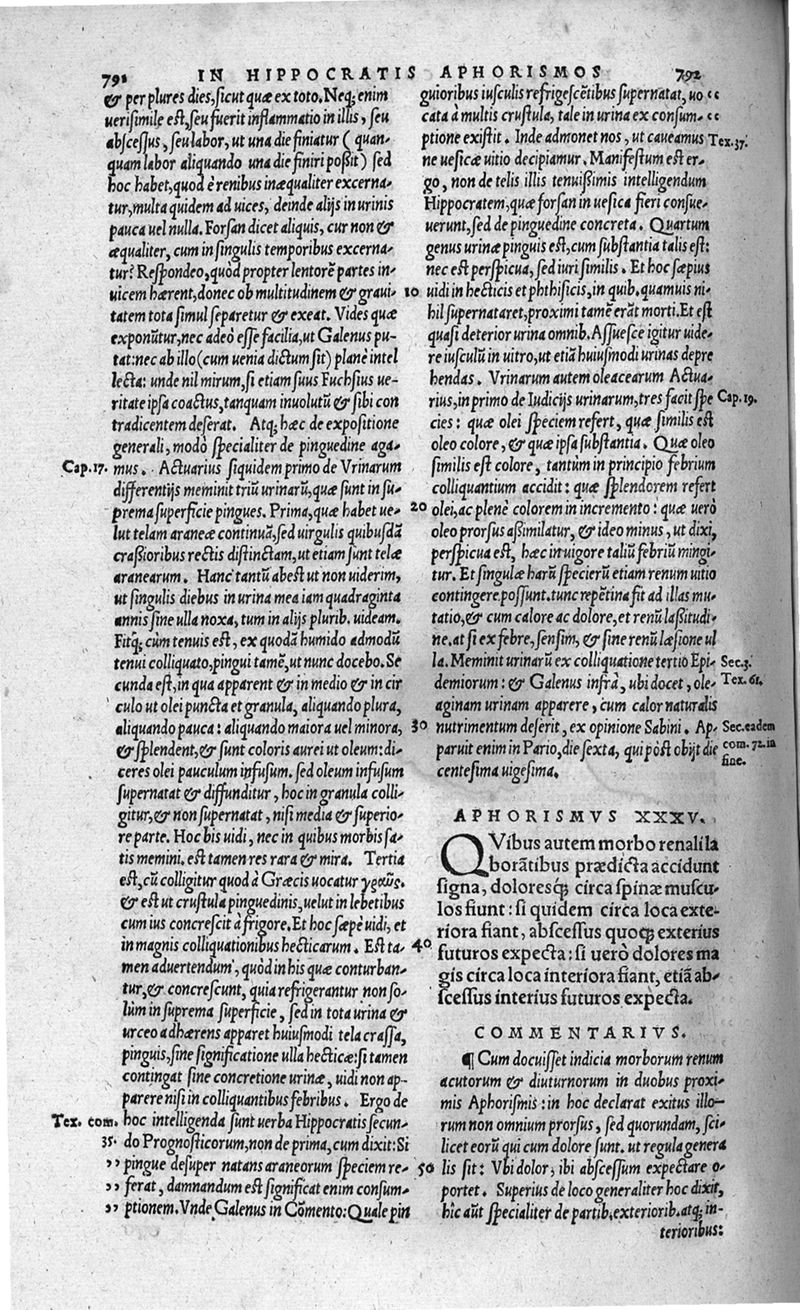 791 IN HIPPOCRATIS APHORISMOS 792
& per plures dies, sicut quæ ex toto. Neq; enim
uerisimile est, seu fuerit inflammatio in illis, seu
abscessus, seu labor, ut una die finiatur (quan-
quam labor aliquando una die finiri possit) sed
hoc habet, quod è renibus inæqualiter excerna-
tur, multa quidem ad uices, deinde alijs in urinis
pauca uel nulla. Forsan dicet aliquis, cur non &
æqualiter, cum in singulis temporibus excerna-
tur? Respondeo, quòd propter lentorē partes in-
uicem hærent, donec ob multitudinem & graui-
tatem tota simul separetur & exeat. Vides quæ
exponūtur, nec adeò esse facilia, ut Galenus pu-
tat: nec ab illo (cum uenia dictum sit) planè intel
lecta: unde nil mirum, si etiam suus Fuchsius ue-
ritate ipsa coactus, tanquam inuolutū & sibi con
tradicentem deserat. Atq; hæc de expositione
generali, modò specialiter de pinguedine aga-
Cap. 17. mus. Actuarius siquidem primo de Vrinarum
differentijs meminit triū urinarū, quæ sunt in su-
prema superficie pingues. Prima, quæ habet ue-
lut telam araneæ continuā, sed uirgulis quibusdā
crassioribus rectis distinctam, ut etiam sunt telæ
aranearum. Hanc tantū abest ut non uiderim,
ut singulis diebus in urina mea iam quadraginta
annis sine ulla noxa, tum in alijs plurib. uideam.
Fitq; cùm tenuis est, ex quodā humido admodū
tenui colliquato, pingui tamē, ut nunc docebo. Se
cunda est, in qua apparent & in medio & in cir
culo ut olei puncta et granula, aliquando plura,
aliquando pauca: aliquando maiora uel minora,
& splendent, & sunt coloris aurei ut oleum: di-
ceres olei pauculum infusum. sed oleum infusum
supernatat & diffunditur, hoc in granula colli-
gitur, & non supernatat, nisi media & superio-
re parte. Hoc bis uidi, nec in quibus morbis sa-
tis memini. est tamen res rara & mira. Tertia
est, cū colligitur quod à Græcis uocatur
& est ut crustula pinguedinis, uelut in lebetibus
cum ius concrescit à frigore. Et hoc sæpè uidi, et
in magnis colliquationibus hecticarum. Est ta-
men aduertendum, quòd in his quæ conturban-
tur, & concrescunt, quia refrigerantur non so-
lùm in suprema superficie, sed in tota urina &
urceo adhærens apparet huiusmodi tela crassa,
pinguis, sine significatione ulla hecticæ: si tamen
contingat sine concretione urinæ, uidi non ap-
parere nisi in colliquantibus febribus. Ergo de
Tex. com. hoc intelligenda sunt uerba Hippocratis secun-
35. do Prognosticorum, non de prima, cum dixit: Si
,, pingue desuper natans araneorum speciem re-
,, ferat, damnandum est significat enim consum-
,, ptionem. Vnde Galenus in Cōmento: Quale pin
guioribus iusculis refrigescētibus supernatat, uo ‹‹
cata à multis crustula, tale in urina ex consum- ‹‹
ptione existit. Inde admonet nos, ut caueamus Tex. 37.
ne uesicæ uitio decipiamur. Manifestum est er-
go, non de telis illis tenuissimis intelligendum
Hippocratem, quæ forsan in uesica fieri consue-
uerunt, sed de pinguedine concreta. Quartum
genus urinæ pinguis est, cum substantia talis est:
nec est perspicua, sed iuri similis. Et hoc sæpius
10 uidi in hecticis et phthisicis, in quib. quamuis ni-
hil supernataret, proximi tamē erāt morti. Et est
quasi deterior urina omnib. Assuesce igitur uide-
re iusculū in uitro, ut etiā huiusmodi urinas depre
hendas. Vrinarum autem oleacearum Actua-
rius, in primo de Iudicijs urinarum, tres facit spe Cap. 19.
cies: quæ olei speciem refert, quæ similis est
oleo colore, & quæ ipsa substantia. Quæ oleo
similis est colore, tantùm in principio febrium
colliquantium accidit: quæ splendorem refert
20 olei, ac plenè colorem in incremento: quæ uerò
oleo prorsus assimilatur, & ideo minus, ut dixi,
perspicua est, hæc in uigore taliū febriū mingi-
tur. Et singulæ harū specierū etiam renum uitio
contingere possunt. tunc repētina fit ad illas mu-
tatio, & cum calore ac dolore, et renū lassitudi-
ne. at si ex febre, sensim, & sine renū læsione ul
la. Meminit urinarū ex colliquatione tertio Epi- Sec. 3.
demiorum: & Galenus infrà, ubi docet, ole- Tex. 61.
aginam urinam apparere, cum calor naturalis
30 nutrimentum deserit, ex opinione Sabini. Ap- Sec. eadem
paruit enim in Pario, die sexta, qui pòst obijt die com. 72. in
centesima uigesima. fine.
APHORISMVS XXXV.
QVibus autem morbo renali la
borātibus prædicta accidunt
signa, doloresq; circa spinæ muscu-
los fiunt: si quidem circa loca exte-
riora fiant, abscessus quoq; exterius
40 futuros expecta: si uerò dolores ma
gis circa loca interiora fiant, etiā ab-
scessus interius futuros expecta.
COMMENTARIVS.
¶ Cum docuisset indicia morborum renum
acutorum & diuturnorum in duobus proxi-
mis Aphorismis: in hoc declarat exitus illo-
rum non omnium prorsus, sed quorundam, sci-
licet eorū qui cum dolore sunt. ut regula genera
50 lis sit: Vbi dolor, ibi abscessum expectare o-
portet. Superius de loco generaliter hoc dixit,
hîc aūt specialiter de partib. exteriorib. atq; in-
terioribus: